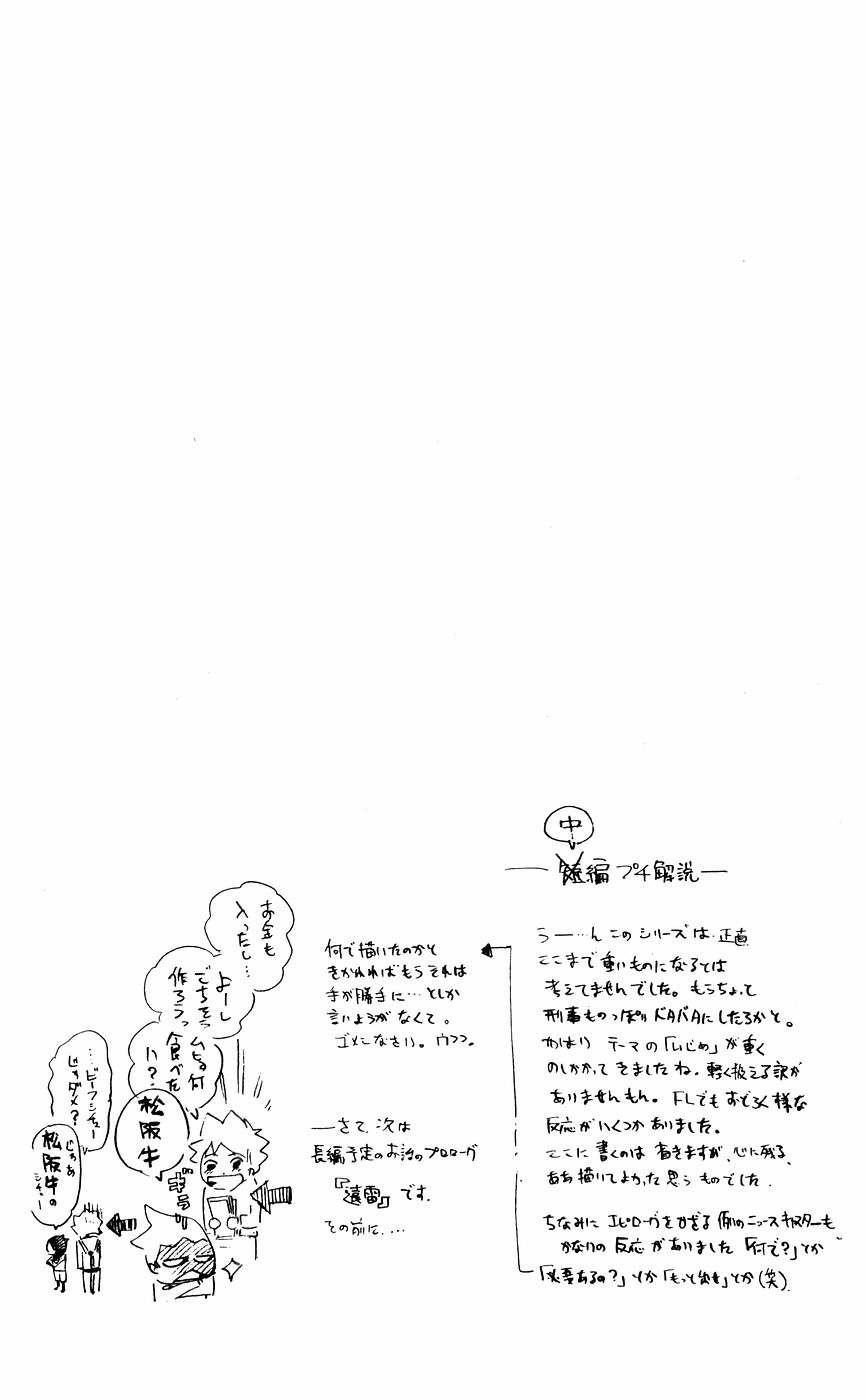 中
短編プチ解説
うー…ん このシリーズは 正直
ここまで重いものになるとは
考えてませんでした。もうちょっと
刑事ものっぽりドタバタにしたろかと。
やはり テーマの「いじめ」が重く
のしかかってきましたね。軽く扱える訳が
ありませんもん。FLでもおどろく様な
反応がいくつかありました。
ここに書くのは 省きますが、心に残る、
ああ描いてよかったと思うものでした。
ちなみに エピローグをかざる 例のニュースキャスターも
かなりの反応がありました「何で?」とか
「必要あるの?」とか「もっと出せ」とか(笑)
何で描いたのかと
きかれればもうそれは
手が勝手に…としか
言いようがなくて。
ゴメンなさい。ウフフ。
―さて、次は
長編予定のお話のプロローグ
『遠雷』です。
その前に…
お金も
入ったし…
よーし
ごちそう
作ろうっ
ムヒョ何
食べた
い?
松阪牛
ギラ
…ビーフシチュー
じゃダメ?
じゃあ
松阪牛の
シチュー